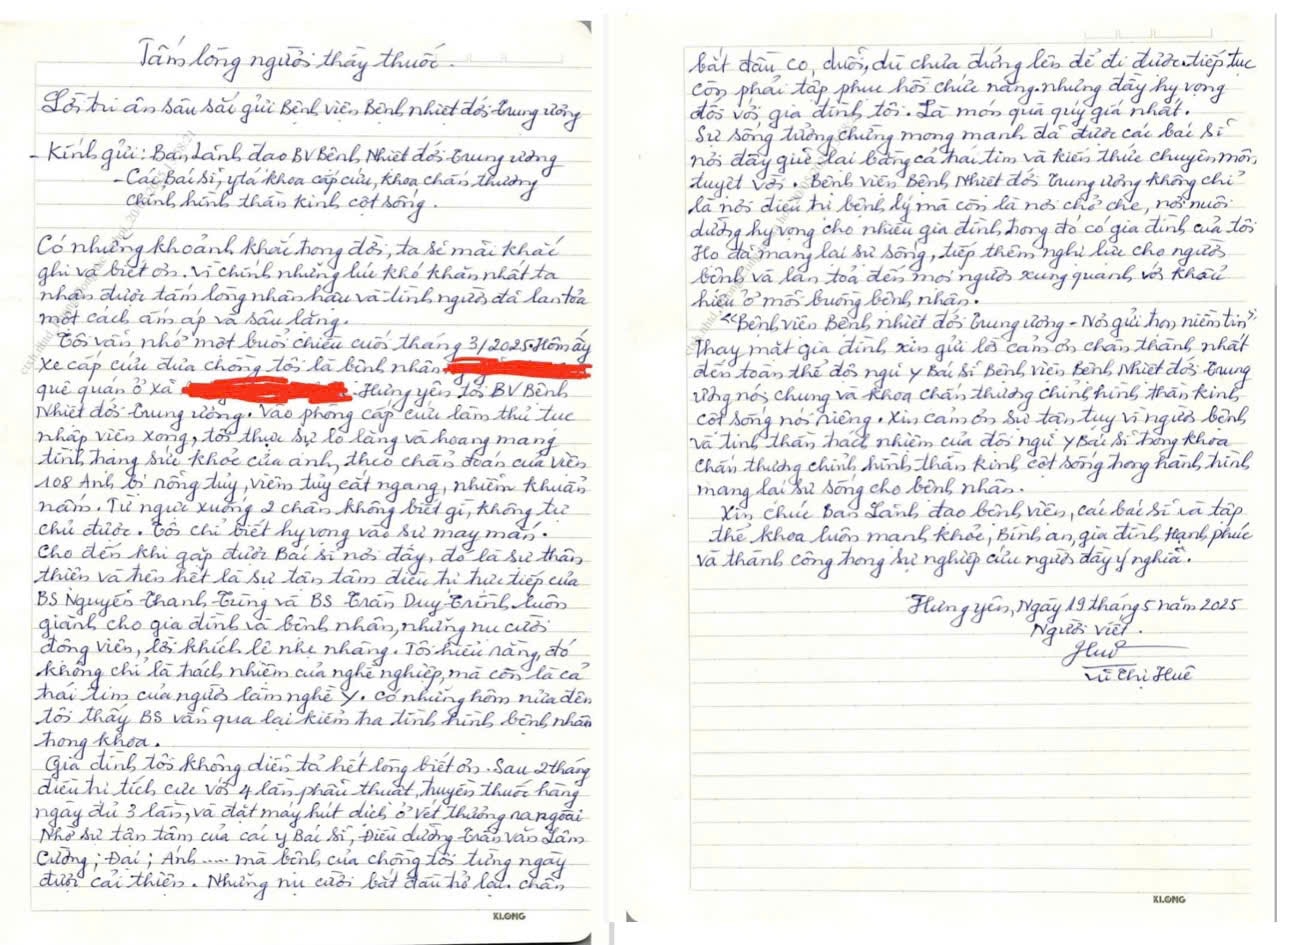 Tấm lòng người thầy thuốc.
Lời tri ân sâu sắc gửi Bệnh viện Bệnh nhiệt đới Trung ương
- Kính gửi: Ban Lãnh đạo BV Bệnh Nhiệt đới Trung ương
- Các Bác sĩ, y tá khoa cấp cứu, khoa chấn thương
chỉnh hình thần kinh cột sống.
Có những khoảnh khắc trong đời, ta sẽ mãi khắc
ghi và biết ơn. Vì chính những lúc khó khăn nhất ta
nhận được tấm lòng nhân hậu và tình người đã lan tỏa
một cách ấm áp và sâu lắng.
Tôi vẫn nhớ một buổi chiều cuối tháng 3/2025. Hôm ấy
xe cấp cứu đưa chồng tôi là bệnh nhân
quê quán ở xã Hưng yên tới BV Bệnh
Nhiệt đới Trung ương. Vào phòng cấp cứu làm thủ tục
nhập viện xong, tôi thực sự lo lắng và hoang mang
tình trạng sức khỏe của anh, theo chẩn đoán của viện
108 Anh bị rỗng tủy, viêm tủy cắt ngang, nhiễm khuẩn
nấm. Từ ngực xuống 2 chân không biết gì, không tự
chủ được. Tôi chỉ biết hy vọng vào sự may mắn.
Cho đến khi gặp được Bác sĩ nơi đây, đó là sự thân
thiện và trên hết là sự tận tâm điều trị trực tiếp của
BS Nguyễn Thanh Tùng và BS Trần Duy Trinh luôn
giành cho gia đình và bệnh nhân, những nụ cười
động viên, lời khích lệ nhẹ nhàng. Tôi hiểu rằng, đó
không chỉ là trách nhiệm của nghề nghiệp, mà còn là cả
trái tim của người làm nghề Y. Có những hôm nửa đêm
tôi thấy BS vẫn qua lại kiểm tra tình hình bệnh nhân
trong khoa.
Gia đình tôi không diễn tả hết lòng biết ơn. Sau 2 tháng
điều trị tích cực với 4 lần phẫu thuật, truyền thuốc hàng
ngày đủ 3 lần, và đặt máy hút dịch ở vết thương ra ngoài
Nhờ sự tận tâm của các y Bác sĩ, Điều dưỡng Trần văn Lâm
Cường; Đại; Anh ..... mà bệnh của chồng tôi từng ngày
được cải thiện. Những nụ cười bắt đầu trở lại. chân
KLONG
bắt đầu co, duỗi, dù chưa đứng lên để đi được. tiếp tục
còn phải tập phục hồi chức năng. nhưng đầy hy vọng
đối với gia đình tôi. Là món quà quý giá nhất.
Sự sống tưởng chừng mong manh đã được các bác sĩ
nơi đây giữ lại bằng cả trái tim và kiến thức chuyên môn
tuyệt vời. Bệnh viện Bệnh Nhiệt đới Trung ương không chỉ
là nơi điều trị bệnh lý mà còn là nơi chở che, nơi nuôi
dưỡng hy vọng cho nhiều gia đình, trong đó có gia đình của tôi
Họ đã mang lại sự sống, tiếp thêm nghị lực cho người
bệnh và lan toả đến mọi người xung quanh, với khẩu
hiệu ở mỗi buồng bệnh nhân.
"Bệnh viện Bệnh nhiệt đới Trung ương - Nơi gửi trọn niềm tin".
Thay mặt gia đình xin gửi lời cảm ơn chân thành nhất
đến toàn thể đội ngũ y Bác Sĩ Bệnh Viện Bệnh Nhiệt đới Trung
ương nói chung và khoa chấn thương chỉnh hình thần kinh
cột sống nói riêng. Xin cảm ơn sự tận tụy vì người bệnh
và tinh thần trách nhiệm của đội ngũ y Bác Sĩ trong khoa
chấn thương chỉnh hình thần kinh cột sống trong hành trình
mang lại sự sống cho bệnh nhân.
Xin chúc Ban Lãnh đạo bệnh viện, các bác sĩ và tập
thể khoa luôn mạnh khỏe, Bình an, gia đình Hạnh phúc
và thành công trong sự nghiệp cứu người đầy ý nghĩa.
Hưng yên, Ngày 19 tháng 5 năm 2025
Người viết.
Huê
Vũ Thị Huê
KLONG